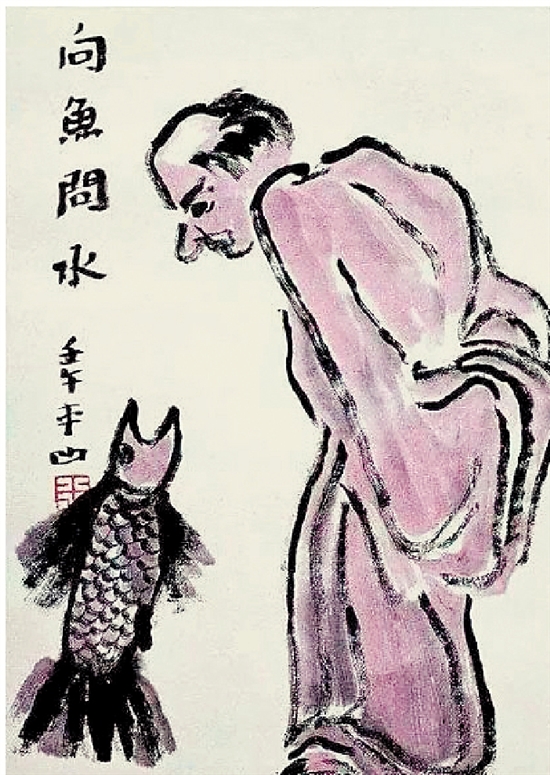 向魚問水
壬午平山